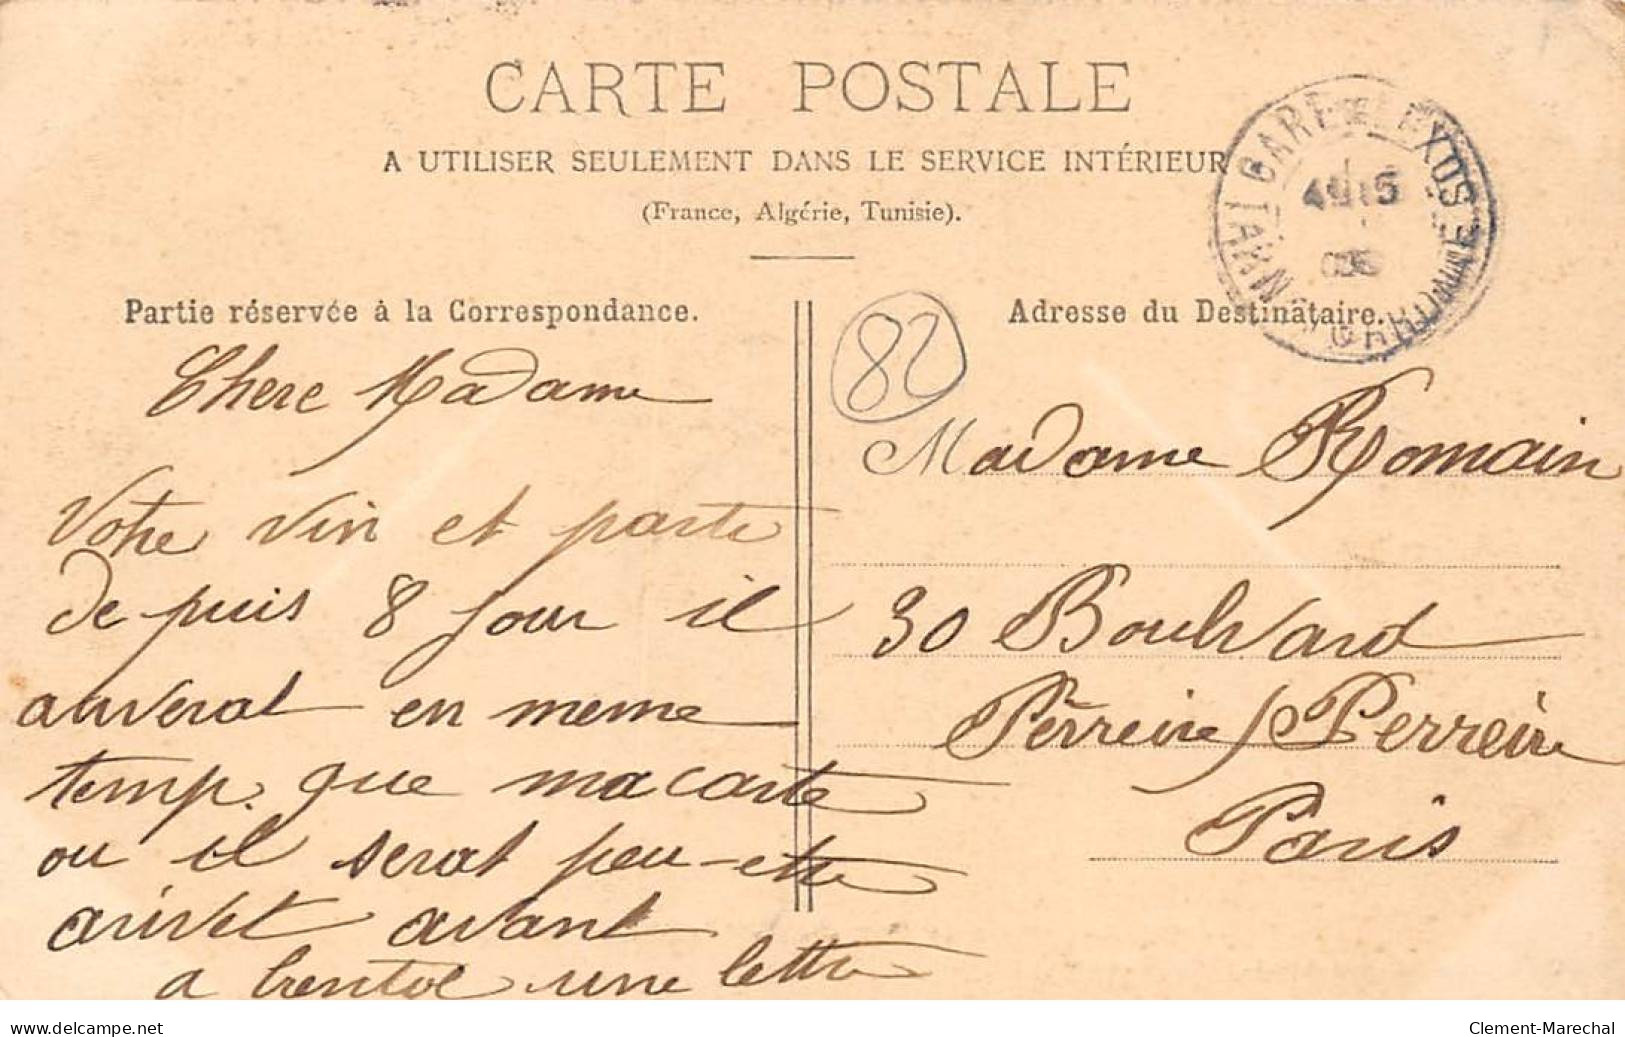 CARTE POSTALE
A UTILISER SEULEMENT DANS LE SERVICE INTÉRIEUR
(France, Algérie, Tunisie).
Partie réservée à la Correspondance.
Chere Madame
Votre vin et parti
de puis 8 jour il
auverat en meme
temp. que ma carte
ou il serat peu-etre
arivet avant
a bentot une lettre
82
Adresse du Destinataire.
Madame Romain
30 Boulvard
Perreire / Perreire
Paris
GARE
www.delcampe.net
Clement-Marechal